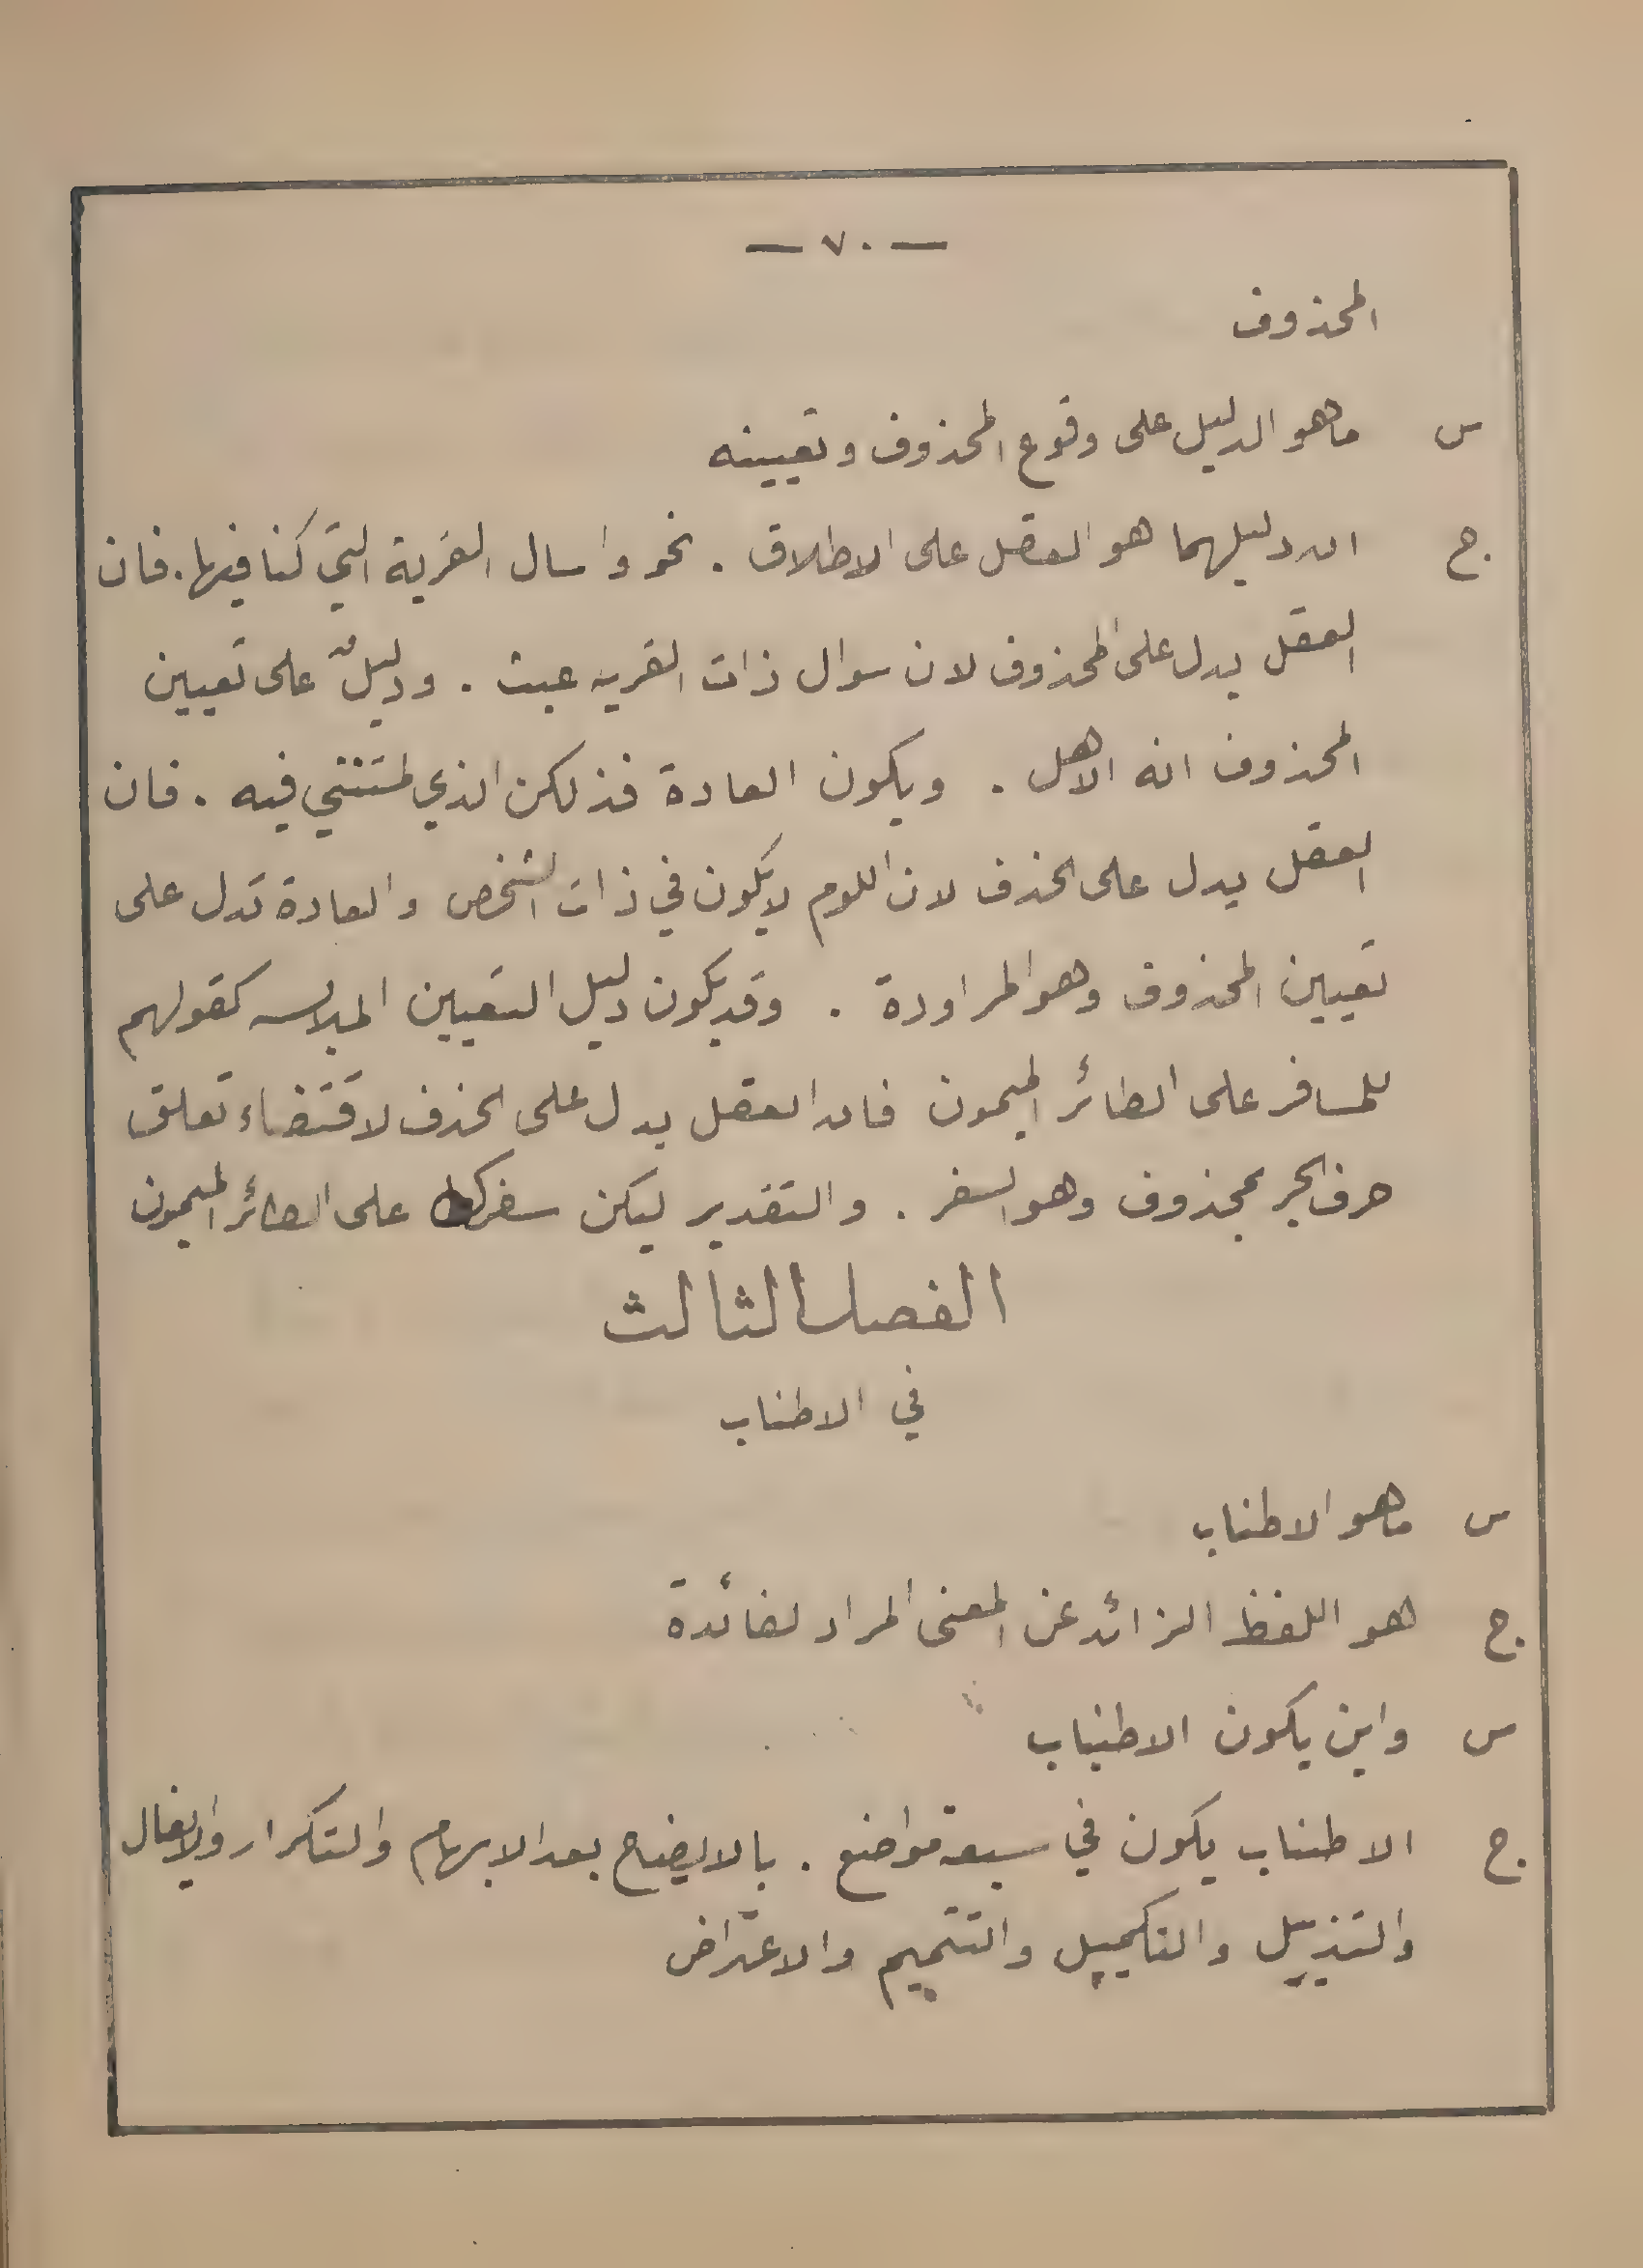 — ٧٠ —
المحذوف
س ما هو الدليل على وقوع المحذوف وتعيينه
ج. ان دليلهما هو العقل على الاطلاق . نحو واسال القرية التي كنا فيها . فان
العقل يدل على المحذوف لان سوال ذات القريه عبث . ودليلٌ على تعيين
المحذوف انه الاهل . ويكون العادة فذلكن الذي لمتنني فيه . فان
العقل يدل على الحذف لان اللوم لا يكون في ذات الشخص والعادة تدل على
تعيين المحذوف وهو المراودة . وقد يكون دليل التعيين الملابسه كقولهم
للمسافر على الطائر الميمون فان العقل يدل على الحذف لاقتضاء تعلق
حرف الجر بمحذوف وهو السفر . والتقدير ليكن سفرك على الطائر الميمون
الفصل الثالث
في الاطناب
س ما هو الاطناب
ج. هو اللفظ الزائد عن المعنى المراد لفائدة
س واين يكون الاطناب
ج. الاطناب يكون في سبعة مواضع . بالايضاح بعد الابهام والتكرار والايغال
والتذييل والتكميل والتتميم والاعتراض